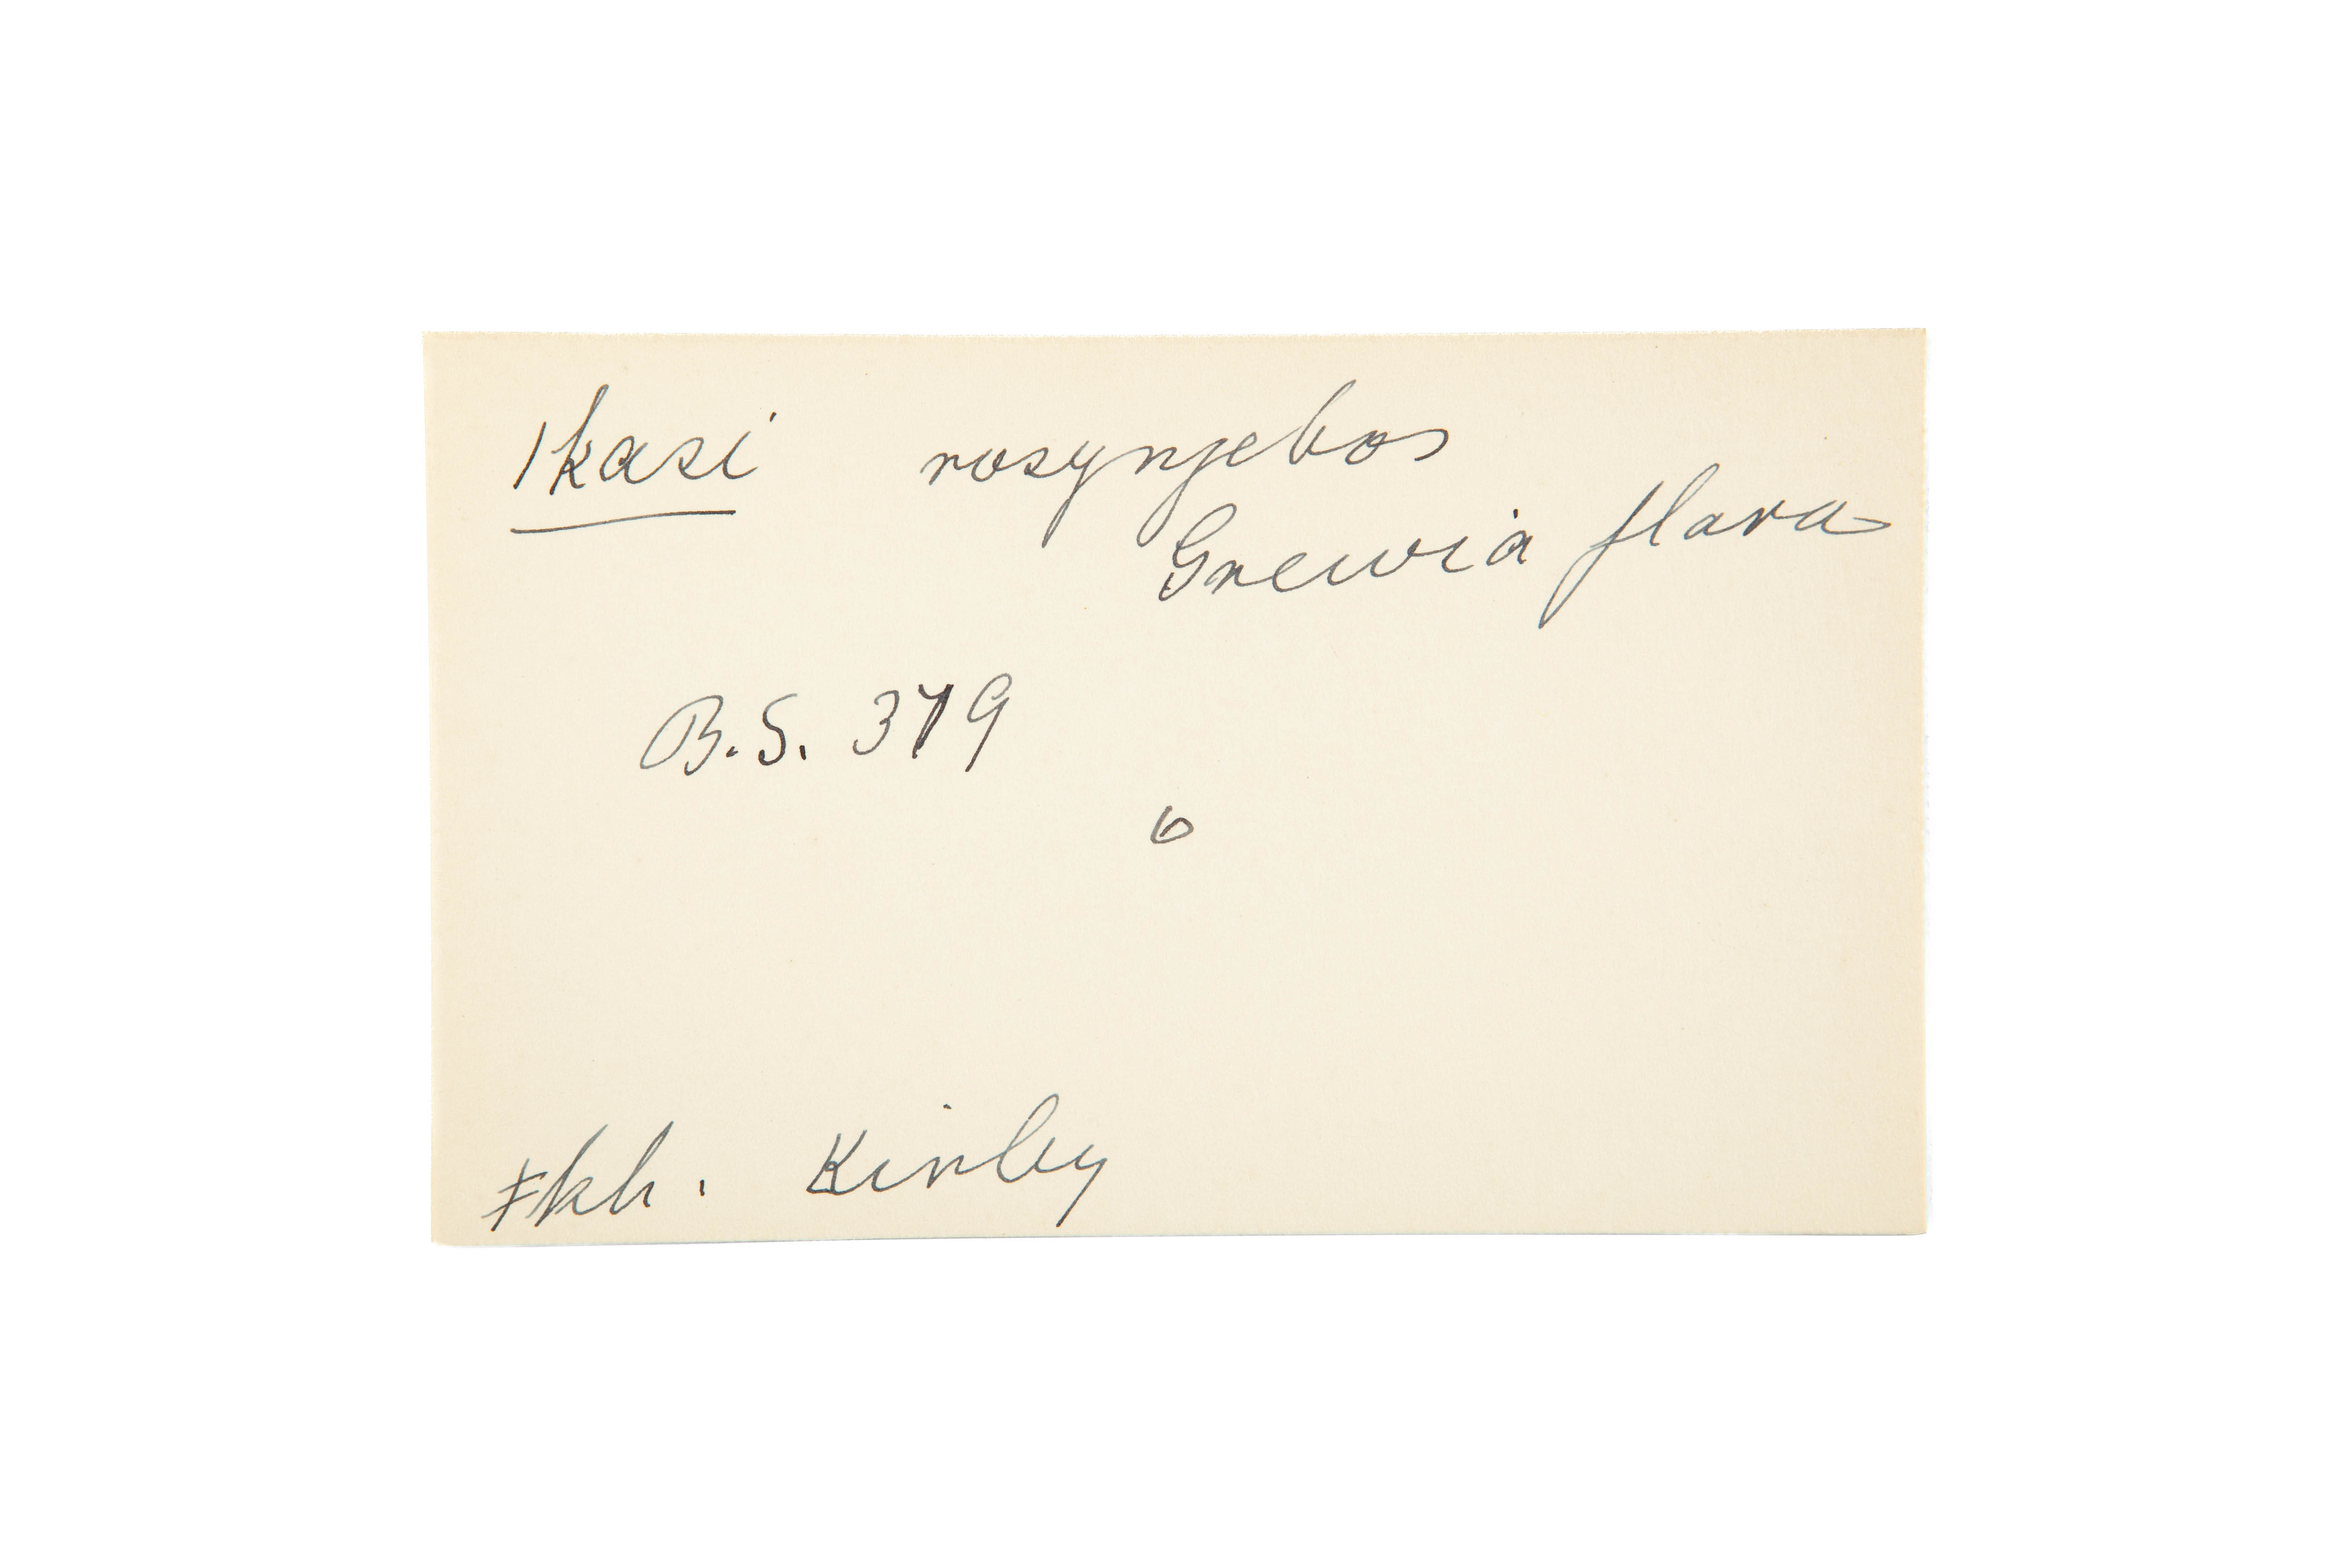 ǀkasi rosynjebos
Grewia flava
B.S. 379
6
ǂkh. Kirby